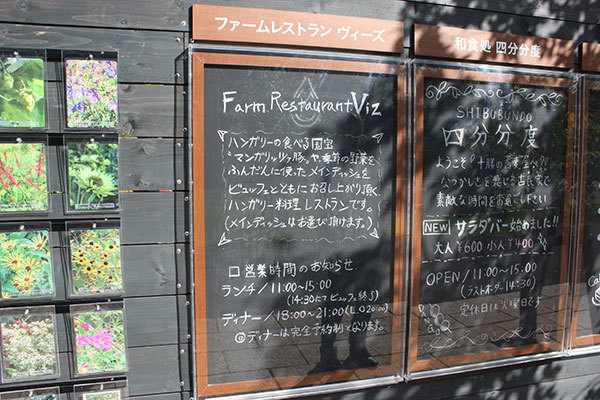 ファームレストラン ヴィーズ
Farm Restaurant Viz
ハンガリーの食べる国宝
"マンガリッツァ豚"や、季節の野菜を
ふんだんに使ったメインディッシュを
ビュッフェとともにお召し上がり頂く
ハンガリー料理レストランです。
(メインディッシュはお選び頂けます。)
□営業時間のお知らせ
ランチ/11:00~15:00
(14:30にてビュッフェ終了)
ディナー/18:00~21:00(L.O20:00)
◎ディナーは完全予約制となります。
和食処 四分分度
SHIBUBUNDO
四分分度
ようこそ!十勝の古民家へ!!
なつかしさを感じる古民家で
素敵な時間をお過ごし下さい
NEW サラダバー始めました!!
大人¥600 小人¥400
OPEN/11:00~15:00
(ラストオーダー14:30)
定休日は火曜日です